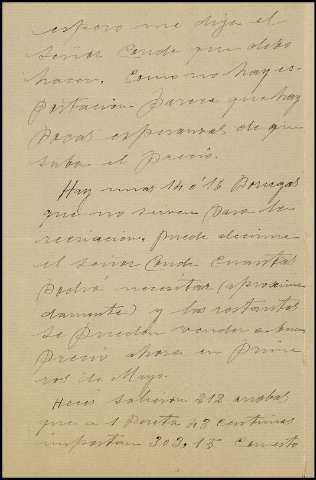 espero me diga el
señor Conde que debo
hacer. Como no hay es-
portacion parece que hay
pocas esperanzas de que
suba el precio.
Hay unas 14 ó 16 borregas
que no sirven para la
recriacion. Puede decirme
el señor Conde cuantas
podrá necesitar (aproxima
damente) y las restantes
se puedan vender a buen
precio ahora en prime
ros de Mayo.
salieron 212 arrobas
que a 1 peseta 43 centimos
importan 303,15